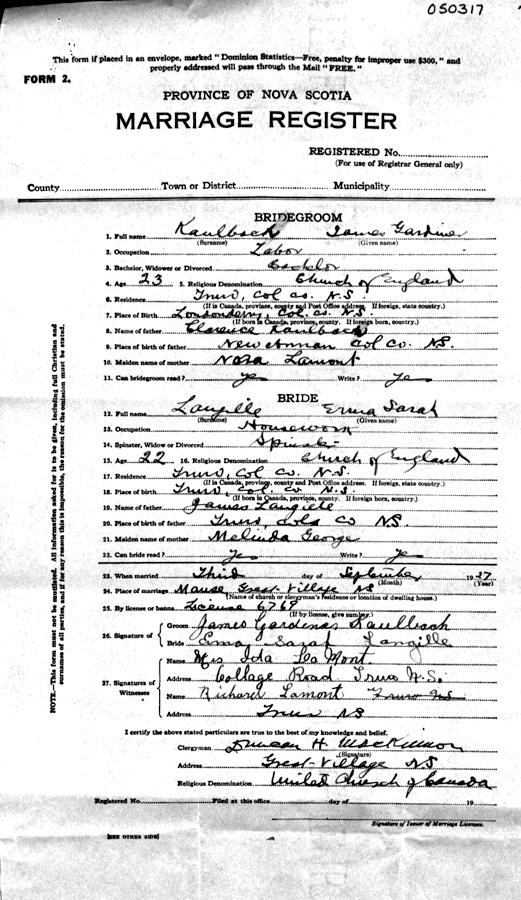 050317
This form if placed in an envelope, marked "Dominion Statistics—Free, penalty for improper use $300," and
properly addressed will pass through the Mail "FREE."
FORM 2.
PROVINCE OF NOVA SCOTIA
MARRIAGE REGISTER
REGISTERED No.
(For use of Registrar General only)
County Town or District Municipality
BRIDEGROOM
1. Full name Kaulback James Gardiner
(Surname) (Given name)
2. Occupation Labor
3. Bachelor, Widower or Divorced Bachelor
4. Age 23 5. Religious Denomination Church of England
6. Residence Truro, Col co. N.S.
(If in Canada, province, county and Post Office address. If foreign, state country.)
7. Place of Birth Londonderry, Col. co. N.S.
(If born in Canada, province, county. If foreign born, country.)
8. Name of father Clarence Kaulback
9. Place of birth of father New Annan Col Co. NS.
10. Maiden name of mother Nora Lamont
11. Can bridegroom read? Yes Write? Yes
BRIDE
12. Full name Langille Erma Sarah
(Surname) (Given name)
13. Occupation Housework
14. Spinster, Widow or Divorced Spinster
15. Age 22 16. Religious Denomination Church of England
17. Residence Truro, Col Co. N.S.
(If in Canada, province, county and Post Office address. If foreign, state country.)
18. Place of birth Truro, Col. Co N.S.
(If born in Canada, province, county. If foreign born, country.)
19. Name of father James Langille
20. Place of birth of father Truro, Cols Co NS.
21. Maiden name of mother Melinda George
22. Can bride read? Yes Write? Yes
23. When married Third day of September 1937
(Month) (Year)
24. Place of marriage Manse Great Village NS
(Name of church or clergyman's residence or location of dwelling house.)
25. By license or banns License 6769
(If by license, give number.)
26. Signature of Groom James Gardiner Kaulback
Bride Erma Sarah Langille
27. Signatures of Witnesses
Name Mrs Ida La Mont.
Address College Road Truro N.S.
Name Richard Lamont Truro NS
Address Truro NS
I certify the above stated particulars are true to the best of my knowledge and belief.
Clergyman Duncan H. MacKinnon
(Signature)
Address Great Village NS
Religious Denomination United Church of Canada
Registered No. Filed at this office day of 19
Signature of Issuer of Marriage Licenses.
[SEE OTHER SIDE]
NOTE.—This form must not be mutilated. All information asked for is to be given, including full Christian and
surnames of all parties, and if for any reason this is impossible, the reason for the omission must be stated.